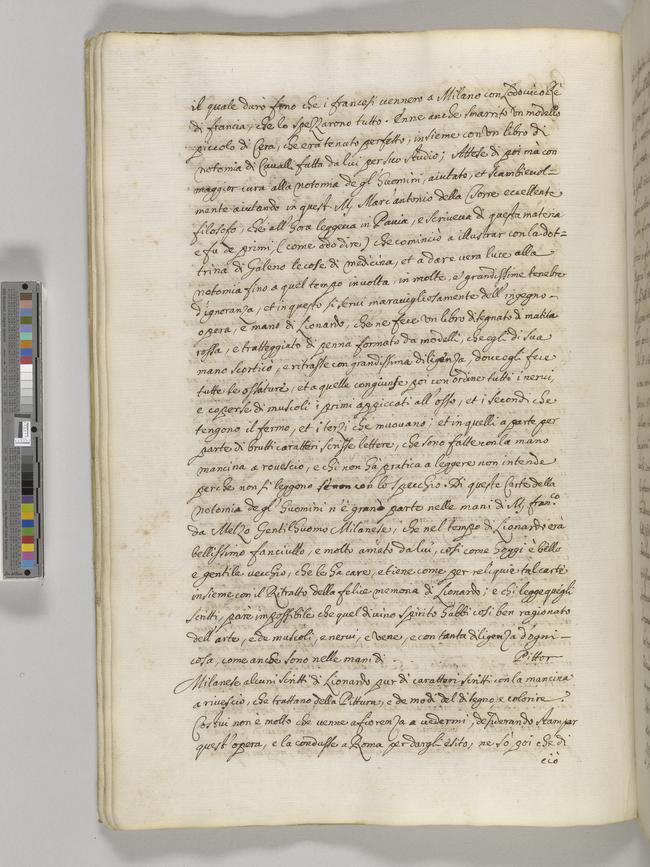 il quale durò fino che i francesi vennero a Milano con Lodovico Rè
di francia, che lo spezzarono tutto. Enne anche smarrito un modello
piccolo di Cera, che era tenuto perfetto, insieme con un libro di
notomia di Cavalli fatta da lui per suo studio; Attese di poi mà con
maggior cura alla notomia de gl'huomini, aiutato, et scambievol-
mente aiutando in quest. Mʃ Marc'antonio della Torre eccellente
filosofo, che all'hora leggeva in Pavia, e scriveva di questa materia
e fu de primi, (come odo dire,) che cominciò a illustrar con la dot-
trina di Galeno le cose di medicina, et a dare vera luce alla
notomia fino a quel tempo involta, in molte, e grandissime tenebre
d'ignoranza, et in questo si servi maravigliosamente dell'ingegno-
opera, e mano di Lionardo, che ne fece un libro disegnato di matita
rossa, e tratteggiato di penna formato da modelli, che egli di sua
mano scorticò, e ritrasse con grandissima diligenza, dove egli fece
tutte le ossature, et a quelle congiunse poi con ordine tutti i nervi,
e coperse di muscoli i primi appiccati all'osso, et i secondi che
tengono il fermo, et i terzi che muovano; et in quelli a parte per
parte di brutti caratteri scrisse lettere, che sono fatte con la mano
mancina a rovescio, e chi non hà pratica a leggere non intende
perche non si leggono se non con lo specchio. Di queste Carte della
notomia de gl'huomini n'è gran parte nelle mani di Mʃ fran.co
da Melzo Gentilhuomo Milanese, che nel tempo di Lionardo era
bellissimo fanciullo, e molto amato da lui, così come hoggi è bello
e gentile vecchio, che le ha care, e tiene come per reliquie tal carte
insieme con il Ritratto della felice memoria di Lionardo; e chi legge quegli
scritti, pare impossibile che quel divino spirito habbi cosi ben ragionato
dell'arte, e de muscoli, e nervi, e vene, e con tanta diligenza d'ogni-
cosa, come anche sono nelle mani di . . Pittor
Milanese alcuni scritti di Lionardo pur di caratteri scritti con la mancina
a rivescio, che trattano della Pittura, e de modi del disegno e colorire.
Costui non è molto che venne a fiorenza a vedermi, desiderando stampar
quest'opera, e la condusse a Roma per dargli esito, ne sò poi che di
ciò